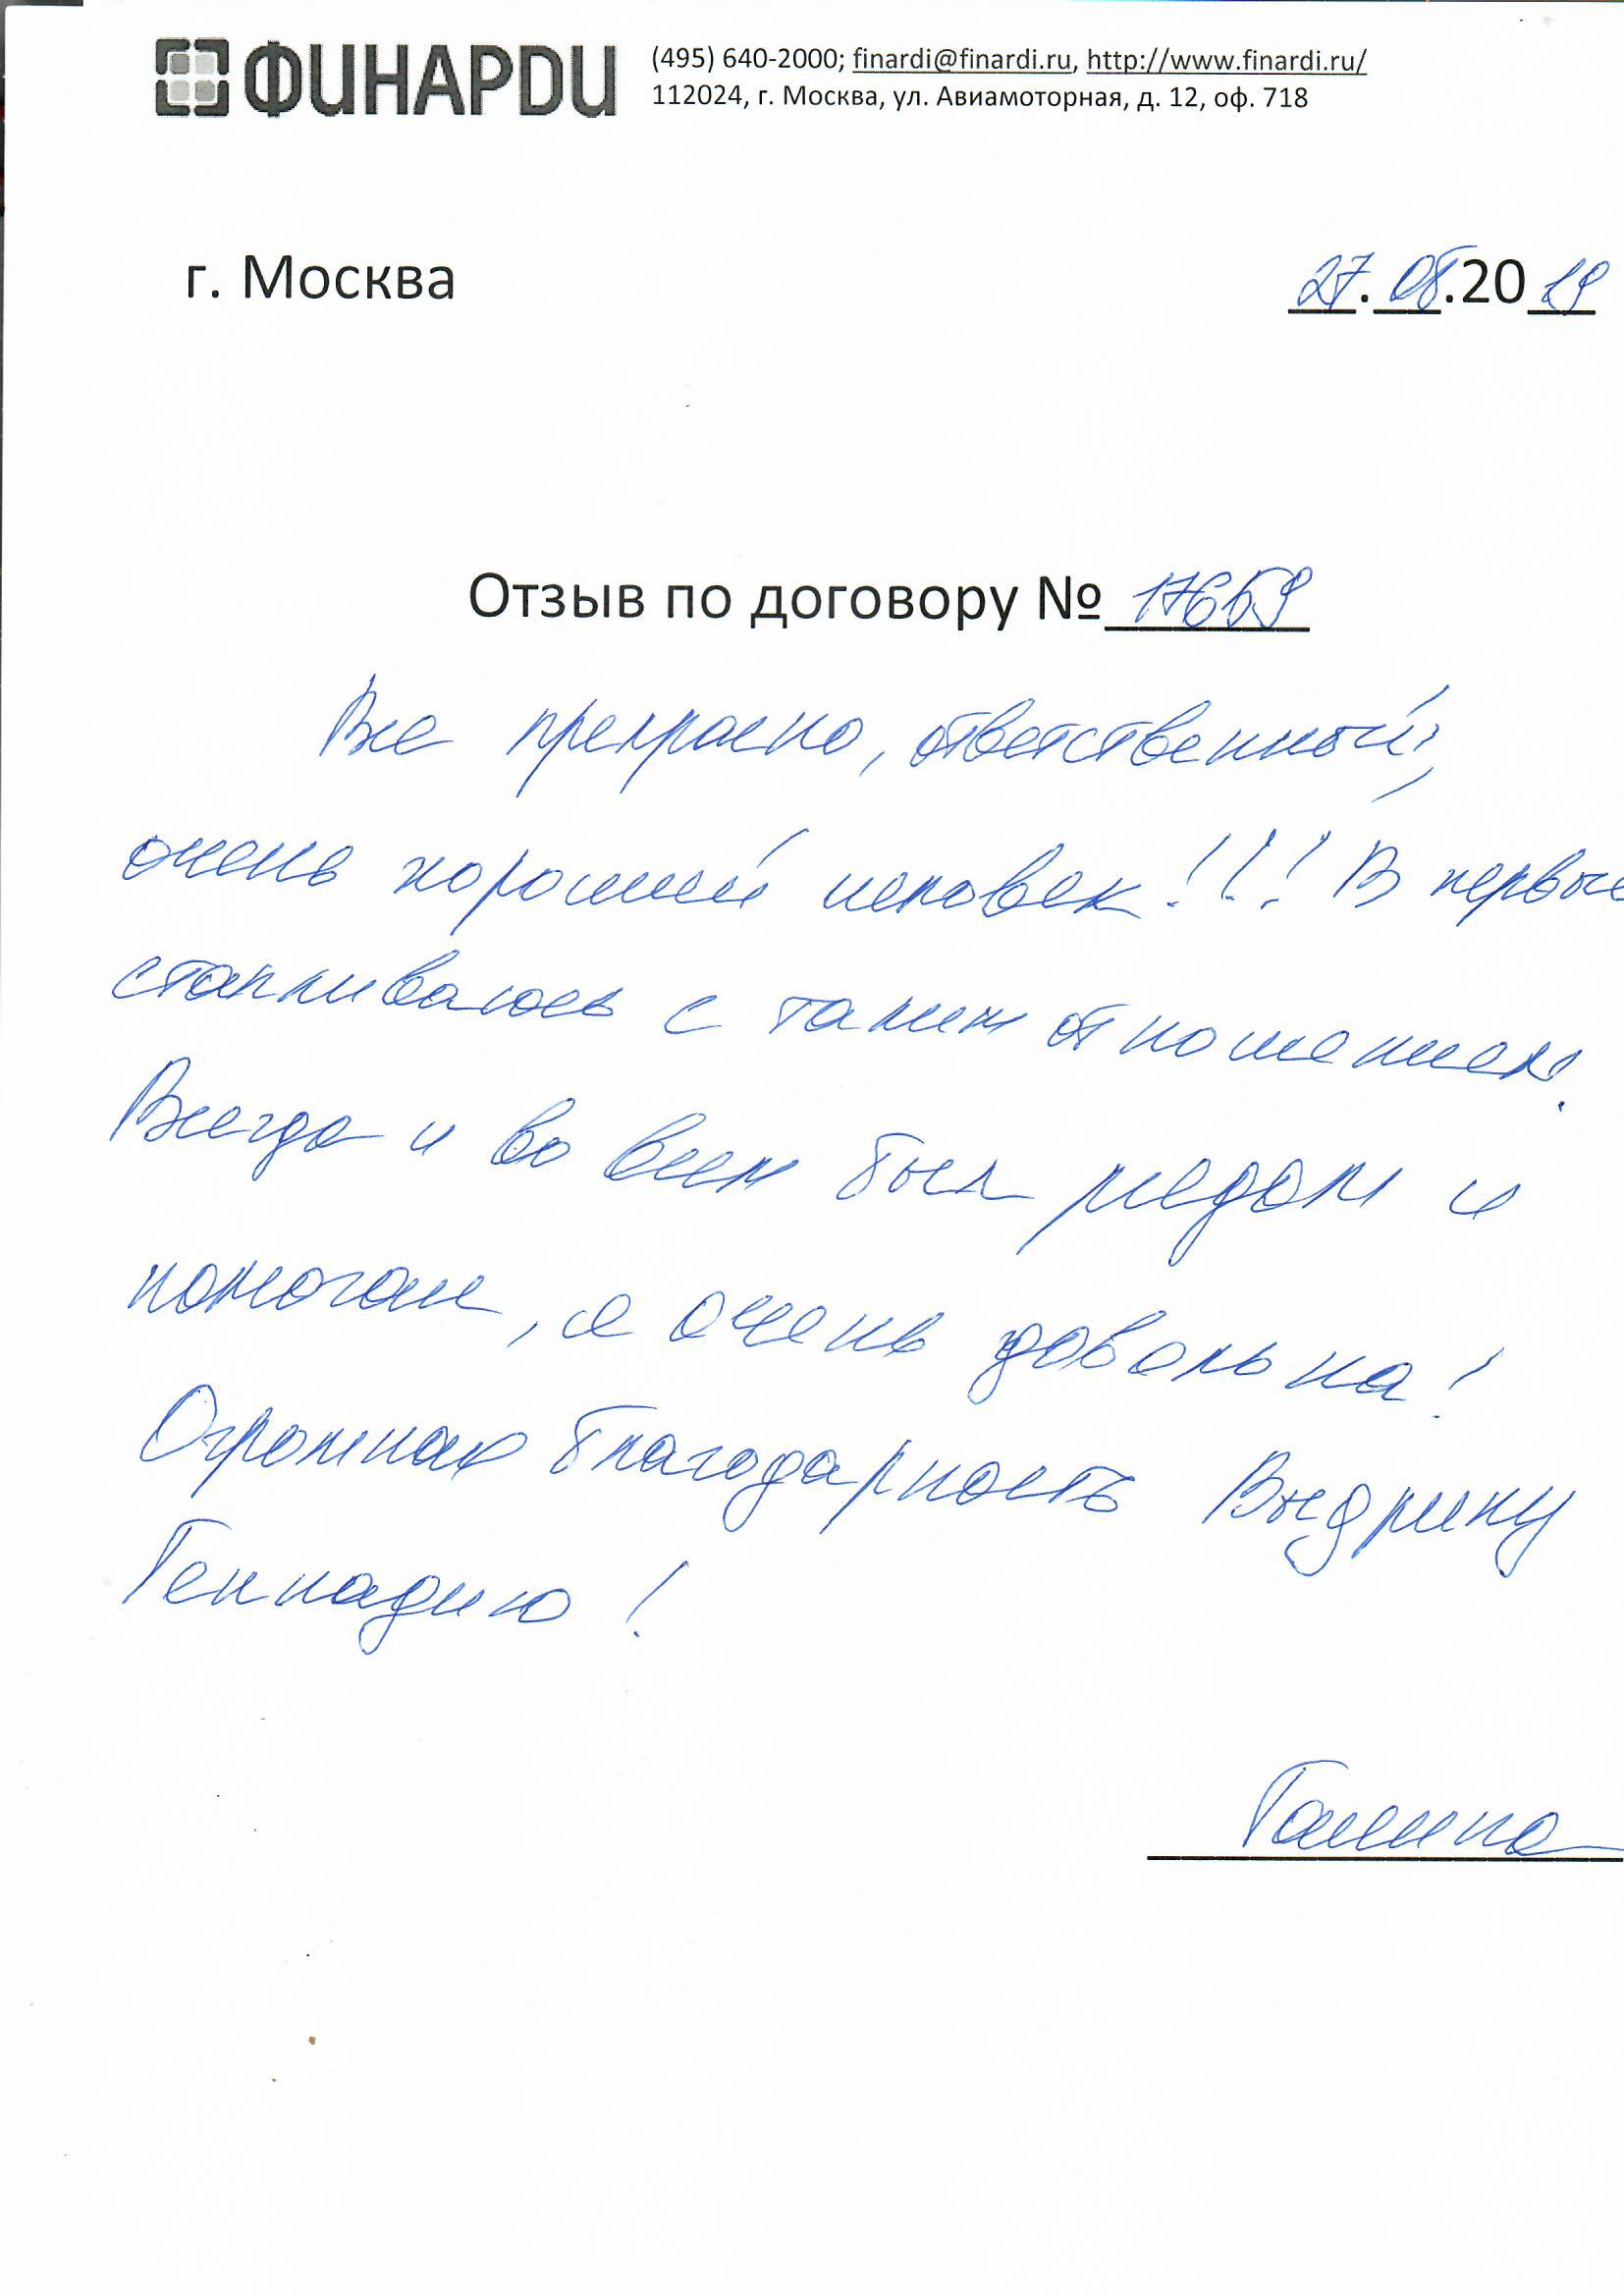 ФИНАРДИ
(495) 640-2000; finardi@finardi.ru, http://www.finardi.ru/
112024, г. Москва, ул. Авиамоторная, д. 12, оф. 718
г. Москва 27.08.2019
Отзыв по договору № 17659
Все прекрасно, ответственный,
очень хороший человек!!! В первые
сталкиваюсь с таким отношением.
Всегда и во всем был рядом и
помогал, я очень довольна!
Огромная благодарность Выдрину
Геннадию!
Галина